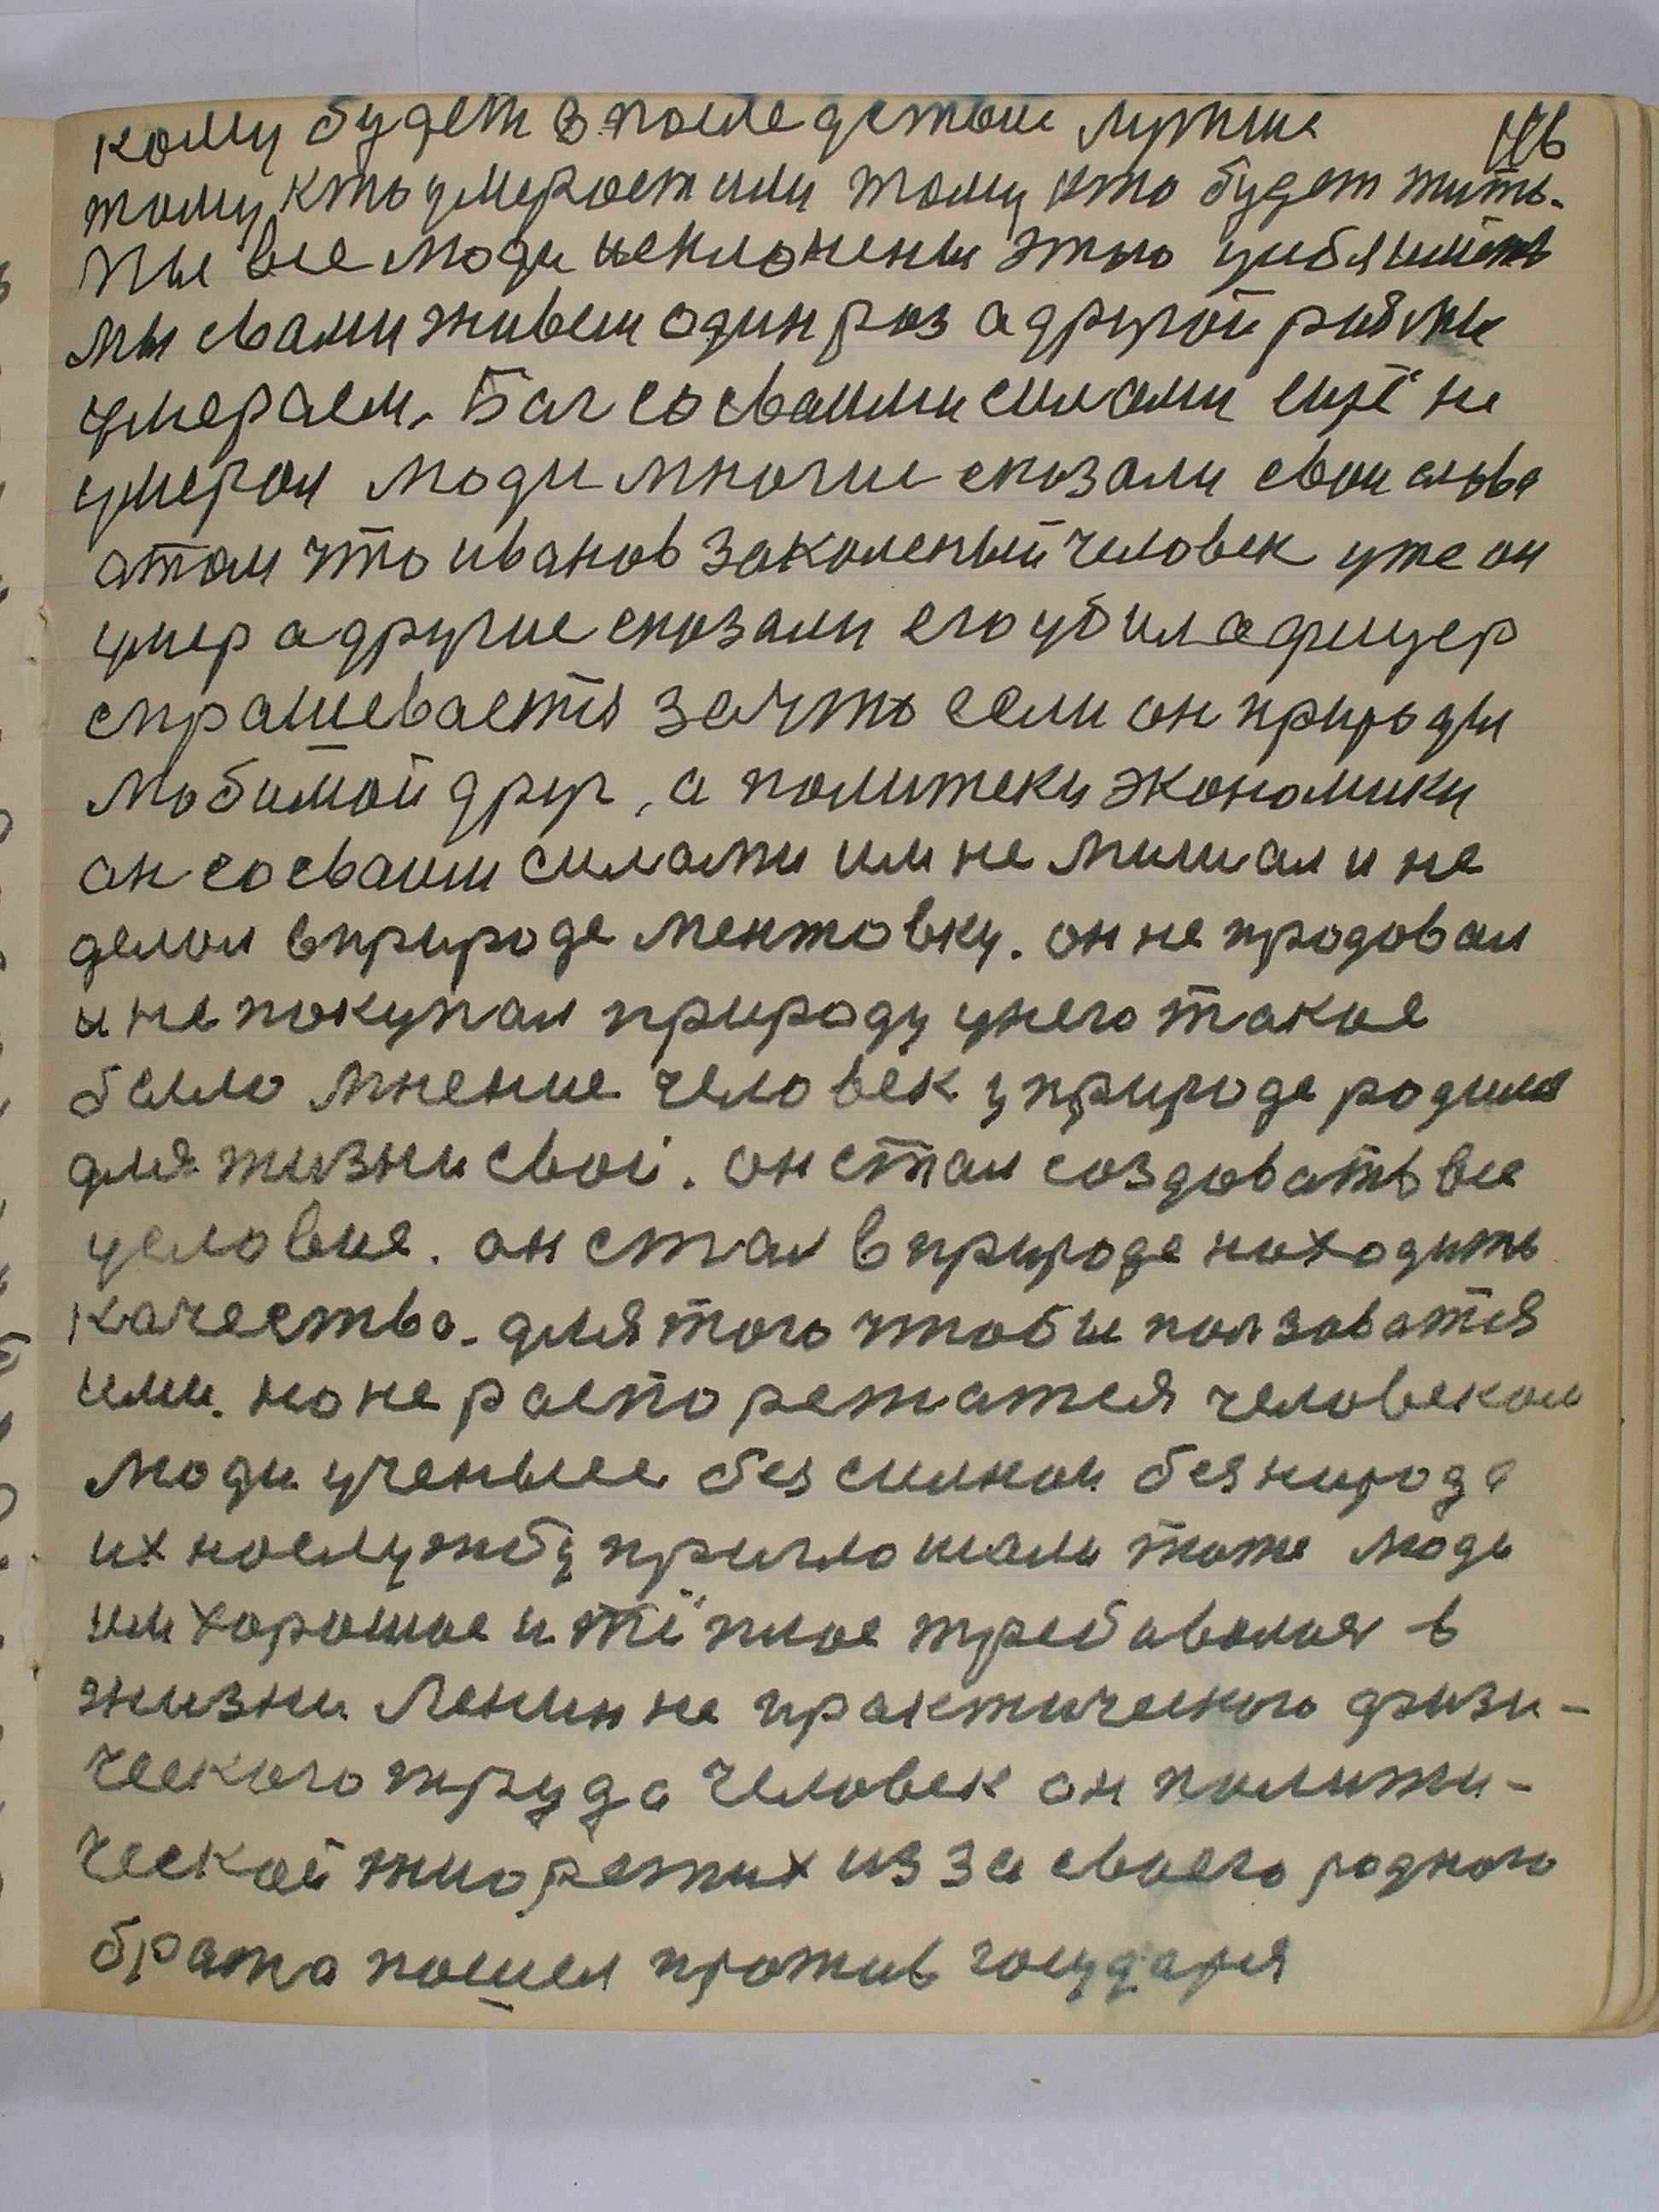 кому будет впоследствие лутше 146
тому кто умероет или тому кто будет жить.
Мы все люди несклонены этого
мы свами живем один роз а другой роз мы
умераем. Бог со сваими силами ещё не
умерал люди многие сказали свои слова
атом что иванов закаленый человек уже он
умер а другие сказали его убил афицер
спрашеваетя за что если он природы
любимой друг, а политеки экономики
он со сваими силами им не мишал и не
делал вприроде ментовку. он не продовал
и не покупал природу унего такое
было мнение человек у природе родился
для жизни свой. он стал создовать все
условие. он стал в природе находить
качество. для того чтобы ползоватя
ими. но не распорежатся человеком
люди ученыее без силнои без народа
их наслужбу приглошали тоже люди
им хорошое и тёплое требавалося в
жизни Ленин не практического физи-
ческого труда человек он полити-
ческой тиоретик из за своего родного
брата пошел против государя